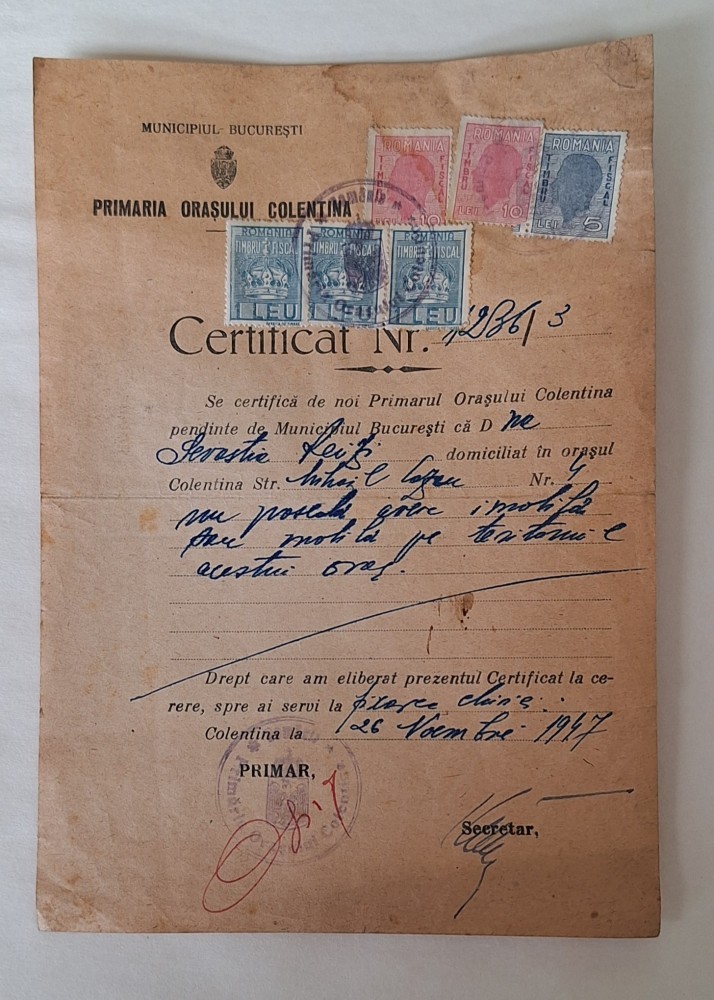 MUNICIPIUL BUCUREȘTI
PRIMARIA ORAȘULUI COLENTINA
ROMANIA TIMBRU FISCAL LEI 10
ROMANIA TIMBRU FISCAL LEI 10
ROMANIA TIMBRU FISCAL LEI 5
ROMANIA TIMBRU FISCAL 1 LEU
ROMANIA TIMBRU FISCAL 1 LEU
ROMANIA TIMBRU FISCAL 1 LEU
Certificat Nr. 1286/3
Se certifică de noi Primarul Orașului Colentina
pendinte de Municipiul București că D na
Sevastia domiciliat în orașul
Colentina Str. Mihail Nr. 4
nu posedă avere imobilă
sau mobilă pe teritoriul
acestui oraș.
Drept care am eliberat prezentul Certificat la ce-
rere, spre ai servi la fixarea chirie.
Colentina la 26 Noembrie 1947
PRIMAR,
Secretar,